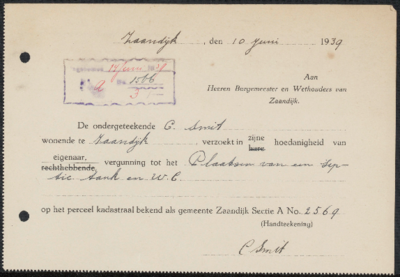 Zaandijk, den 10 Juni 1939
No. 1566
Aan
Heeren Burgemeester en Wethouders van
Zaandijk.
De ondergeteekende C. Smit
wonende te Zaandijk, verzoekt in zijne hoedanigheid van
haare
eigenaar, vergunning tot het Plaatsen van een Sep-
rechthebbende,
tic tank en W.C.
op het perceel kadastraal bekend als gemeente Zaandijk Sectie A No. 2569
(Handteekening)
C Smit